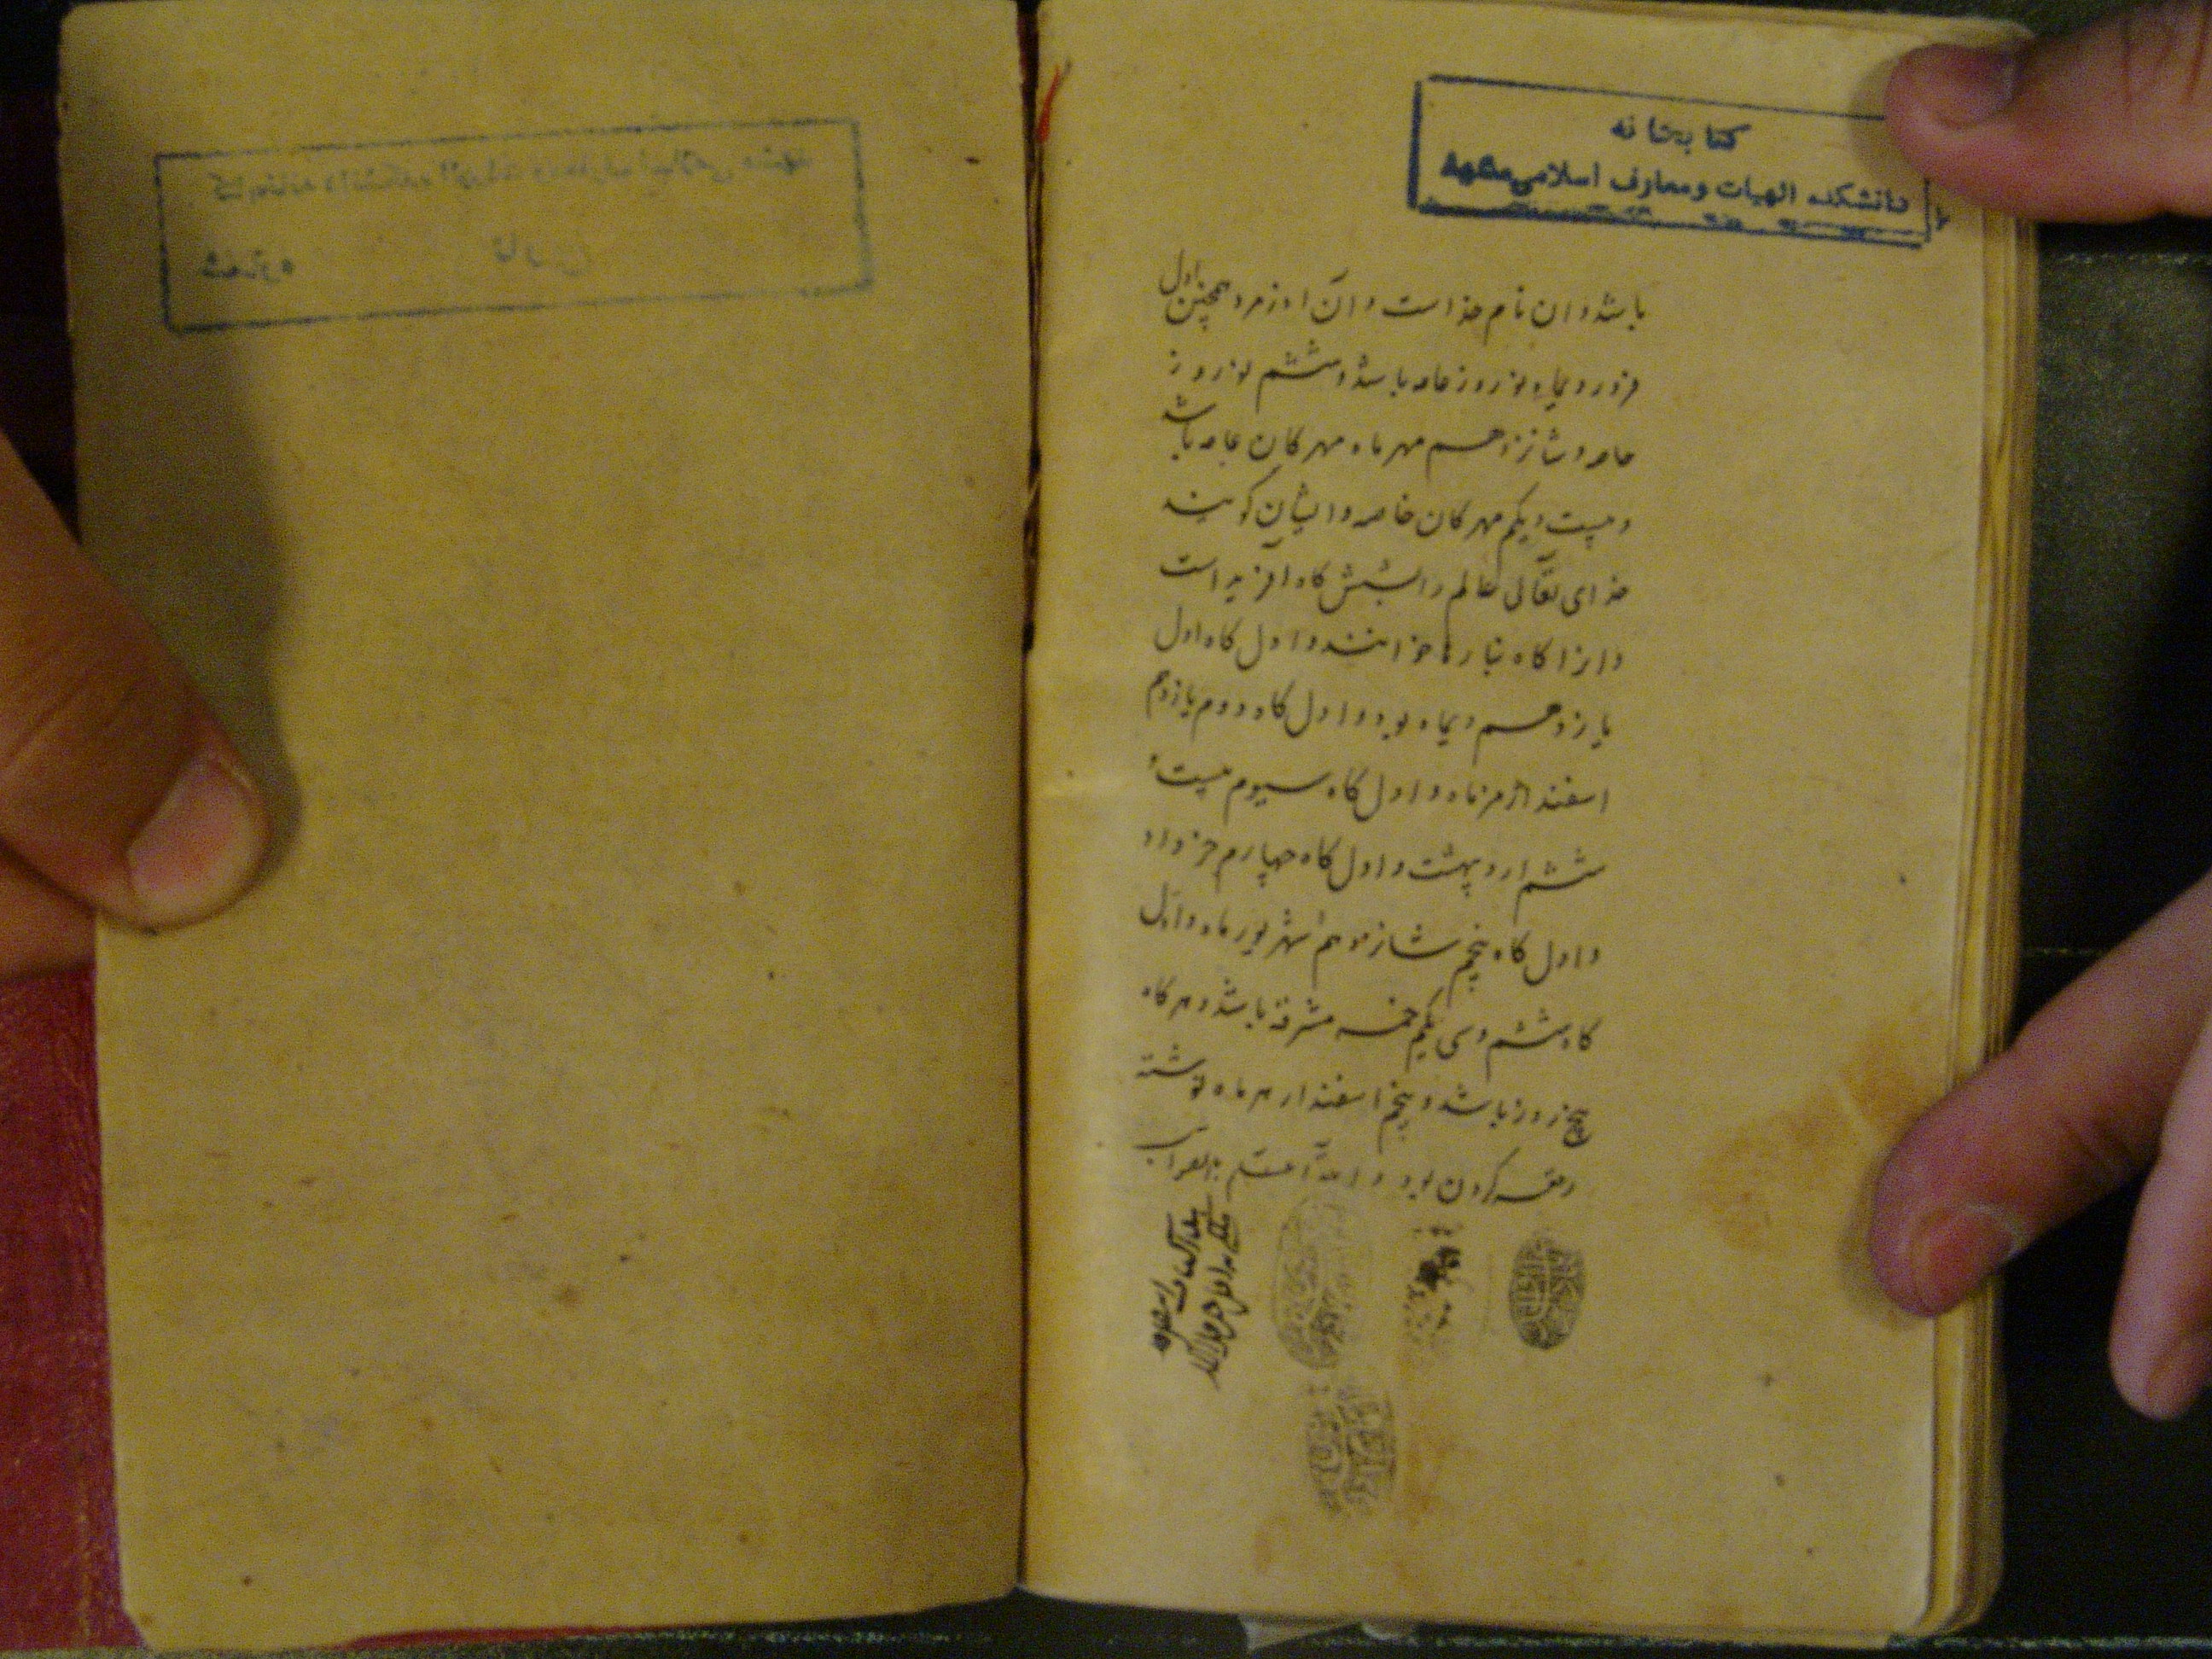 کتابخانه
دانشکده الهیات و معارف اسلامی مشهد
باشد و ان نام خداست و آن اورمزد و همچنین اول
فروردیماه نوروز عامه باشد و ششم نوروز
خاصه و شانزدهم مهر ماه مهر کان عامه باشد
و بیست و یکم مهر کان خاصه و ایشان کویند
خدای تعالی عالم را بشش کاه آفریده است
و انرا کاه نبارها خوانند و اول کاه اول
یازدهم دیماه بود و اول کاه دوم یازدهم
اسفندارمزماه و اول کاه سیوم بیست و
ششم اردیبهشت و اول کاه چهارم خرداد
و اول کاه پنجم شانزدهم شهریور ماه و اول
کاه ششم و سی یکم خمسه مسترقه باشد و هر کاه
پنج روز باشد و پنجم اسفندارمز ماه نوشته
رقعه کردن بود و الله اعلم بالصواب
شماره